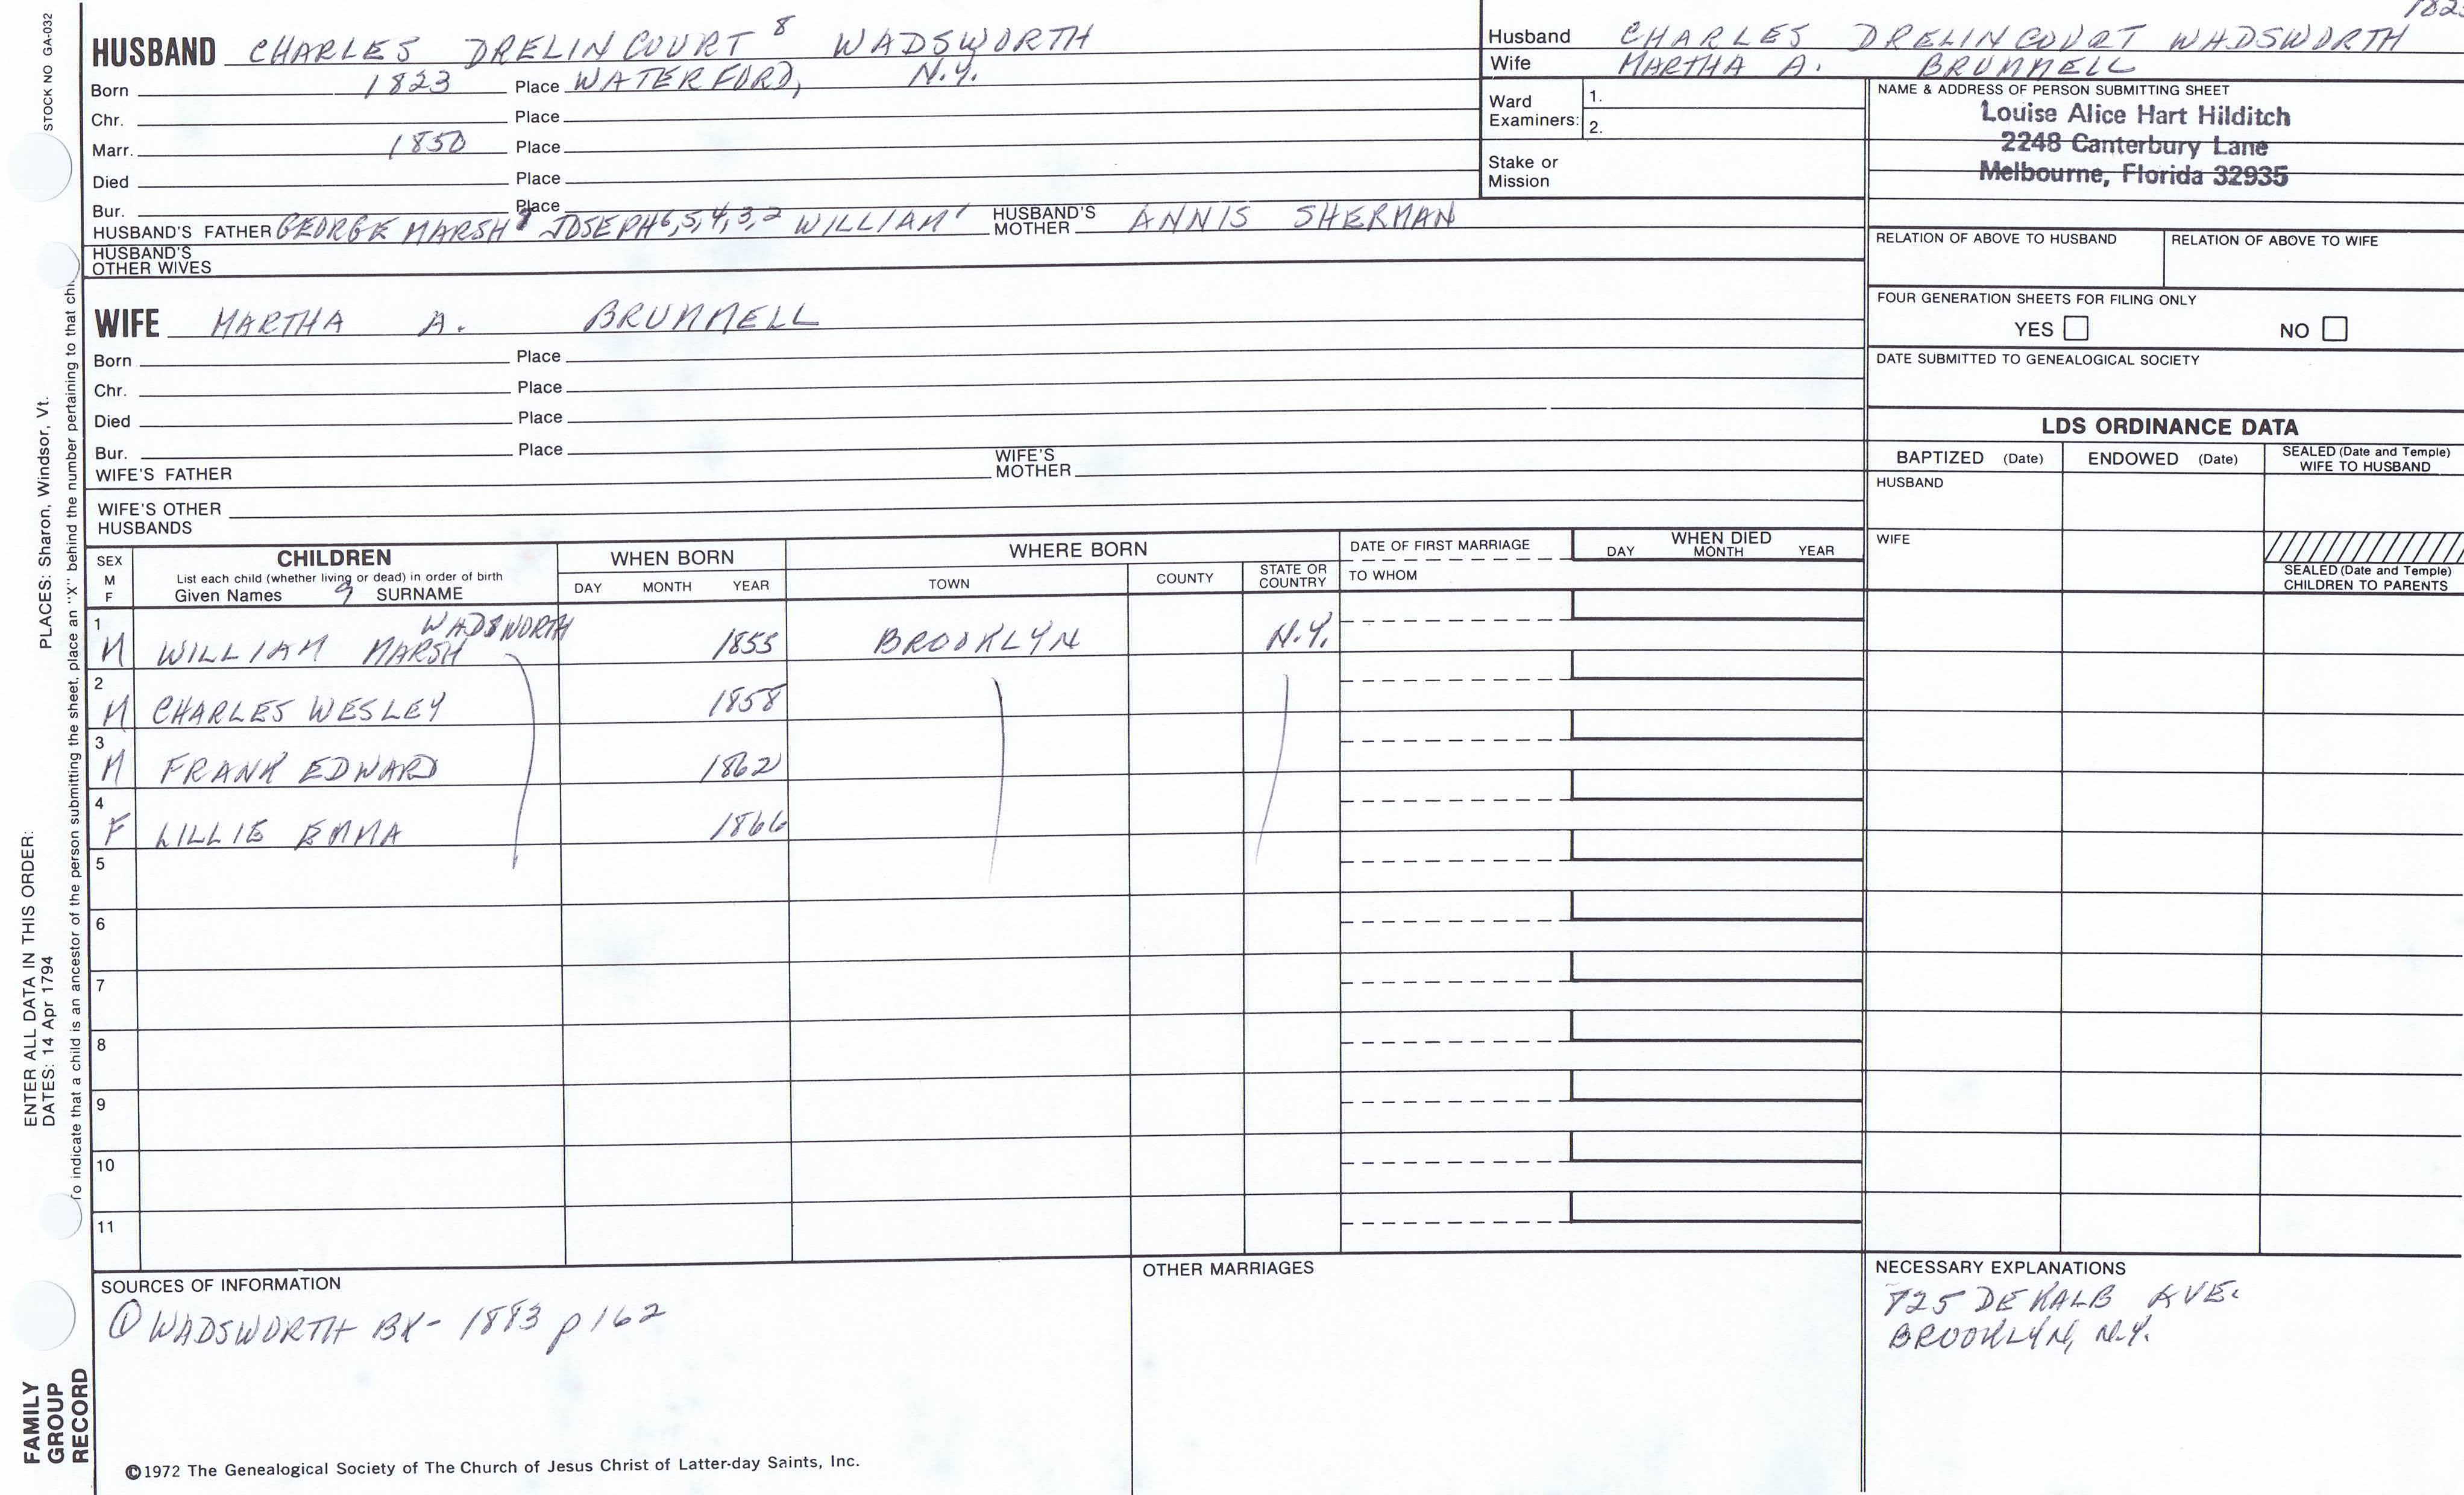 STOCK NO GA-032
HUSBAND CHARLES DRELINCOURT 8 WADSWORTH
Born 1823 Place WATERFORD, N.Y.
Chr. Place
Marr. 1850 Place
Died Place
Bur. Place
HUSBAND'S FATHER GEORGE MARSH JOSEPH 6,5,4,3,2 WILLIAM 1 HUSBAND'S MOTHER ANNIS SHERMAN
HUSBAND'S OTHER WIVES
Husband CHARLES DRELINCOURT WADSWORTH
Wife MARTHA A. BRUMMELL
Ward Examiners: 1.
2.
Stake or Mission
NAME & ADDRESS OF PERSON SUBMITTING SHEET
Louise Alice Hart Hilditch
2248 Canterbury Lane
Melbourne, Florida 32935
RELATION OF ABOVE TO HUSBAND RELATION OF ABOVE TO WIFE
FOUR GENERATION SHEETS FOR FILING ONLY
YES NO
DATE SUBMITTED TO GENEALOGICAL SOCIETY
WIFE MARTHA A. BRUMMELL
Born Place
Chr. Place
Died Place
Bur. Place
WIFE'S FATHER WIFE'S MOTHER
WIFE'S OTHER HUSBANDS
LDS ORDINANCE DATA
BAPTIZED (Date) ENDOWED (Date) SEALED (Date and Temple) WIFE TO HUSBAND
HUSBAND
WIFE
SEALED (Date and Temple) CHILDREN TO PARENTS
SEX M F CHILDREN WHEN BORN WHERE BORN DATE OF FIRST MARRIAGE WHEN DIED
List each child (whether living or dead) in order of birth
Given Names 9 SURNAME DAY MONTH YEAR TOWN COUNTY STATE OR COUNTRY TO WHOM DAY MONTH YEAR
1 M WILLIAM MARSH WADSWORTH 1855 BROOKLYN N.Y.
2 M CHARLES WESLEY 1858
3 M FRANK EDWARD 1862
4 F LILLIE EMMA 1866
5
6
7
8
9
10
11
SOURCES OF INFORMATION
① WADSWORTH BK- 1883 p 162
OTHER MARRIAGES
NECESSARY EXPLANATIONS
725 DE KALB AVE.
BROOKLYN, N.Y.
©1972 The Genealogical Society of The Church of Jesus Christ of Latter-day Saints, Inc.
FAMILY GROUP RECORD
ENTER ALL DATA IN THIS ORDER:
DATES: 14 Apr 1794 PLACES: Sharon, Windsor, Vt.
To indicate that a child is an ancestor of the person submitting the sheet, place an "X" behind the number pertaining to that